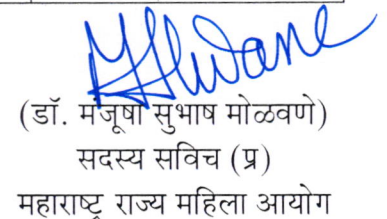 (डॉ. मंजूषा सुभाष मोळवणे)
सदस्य सविच (प्र)
महाराष्ट्र राज्य महिला आयोग